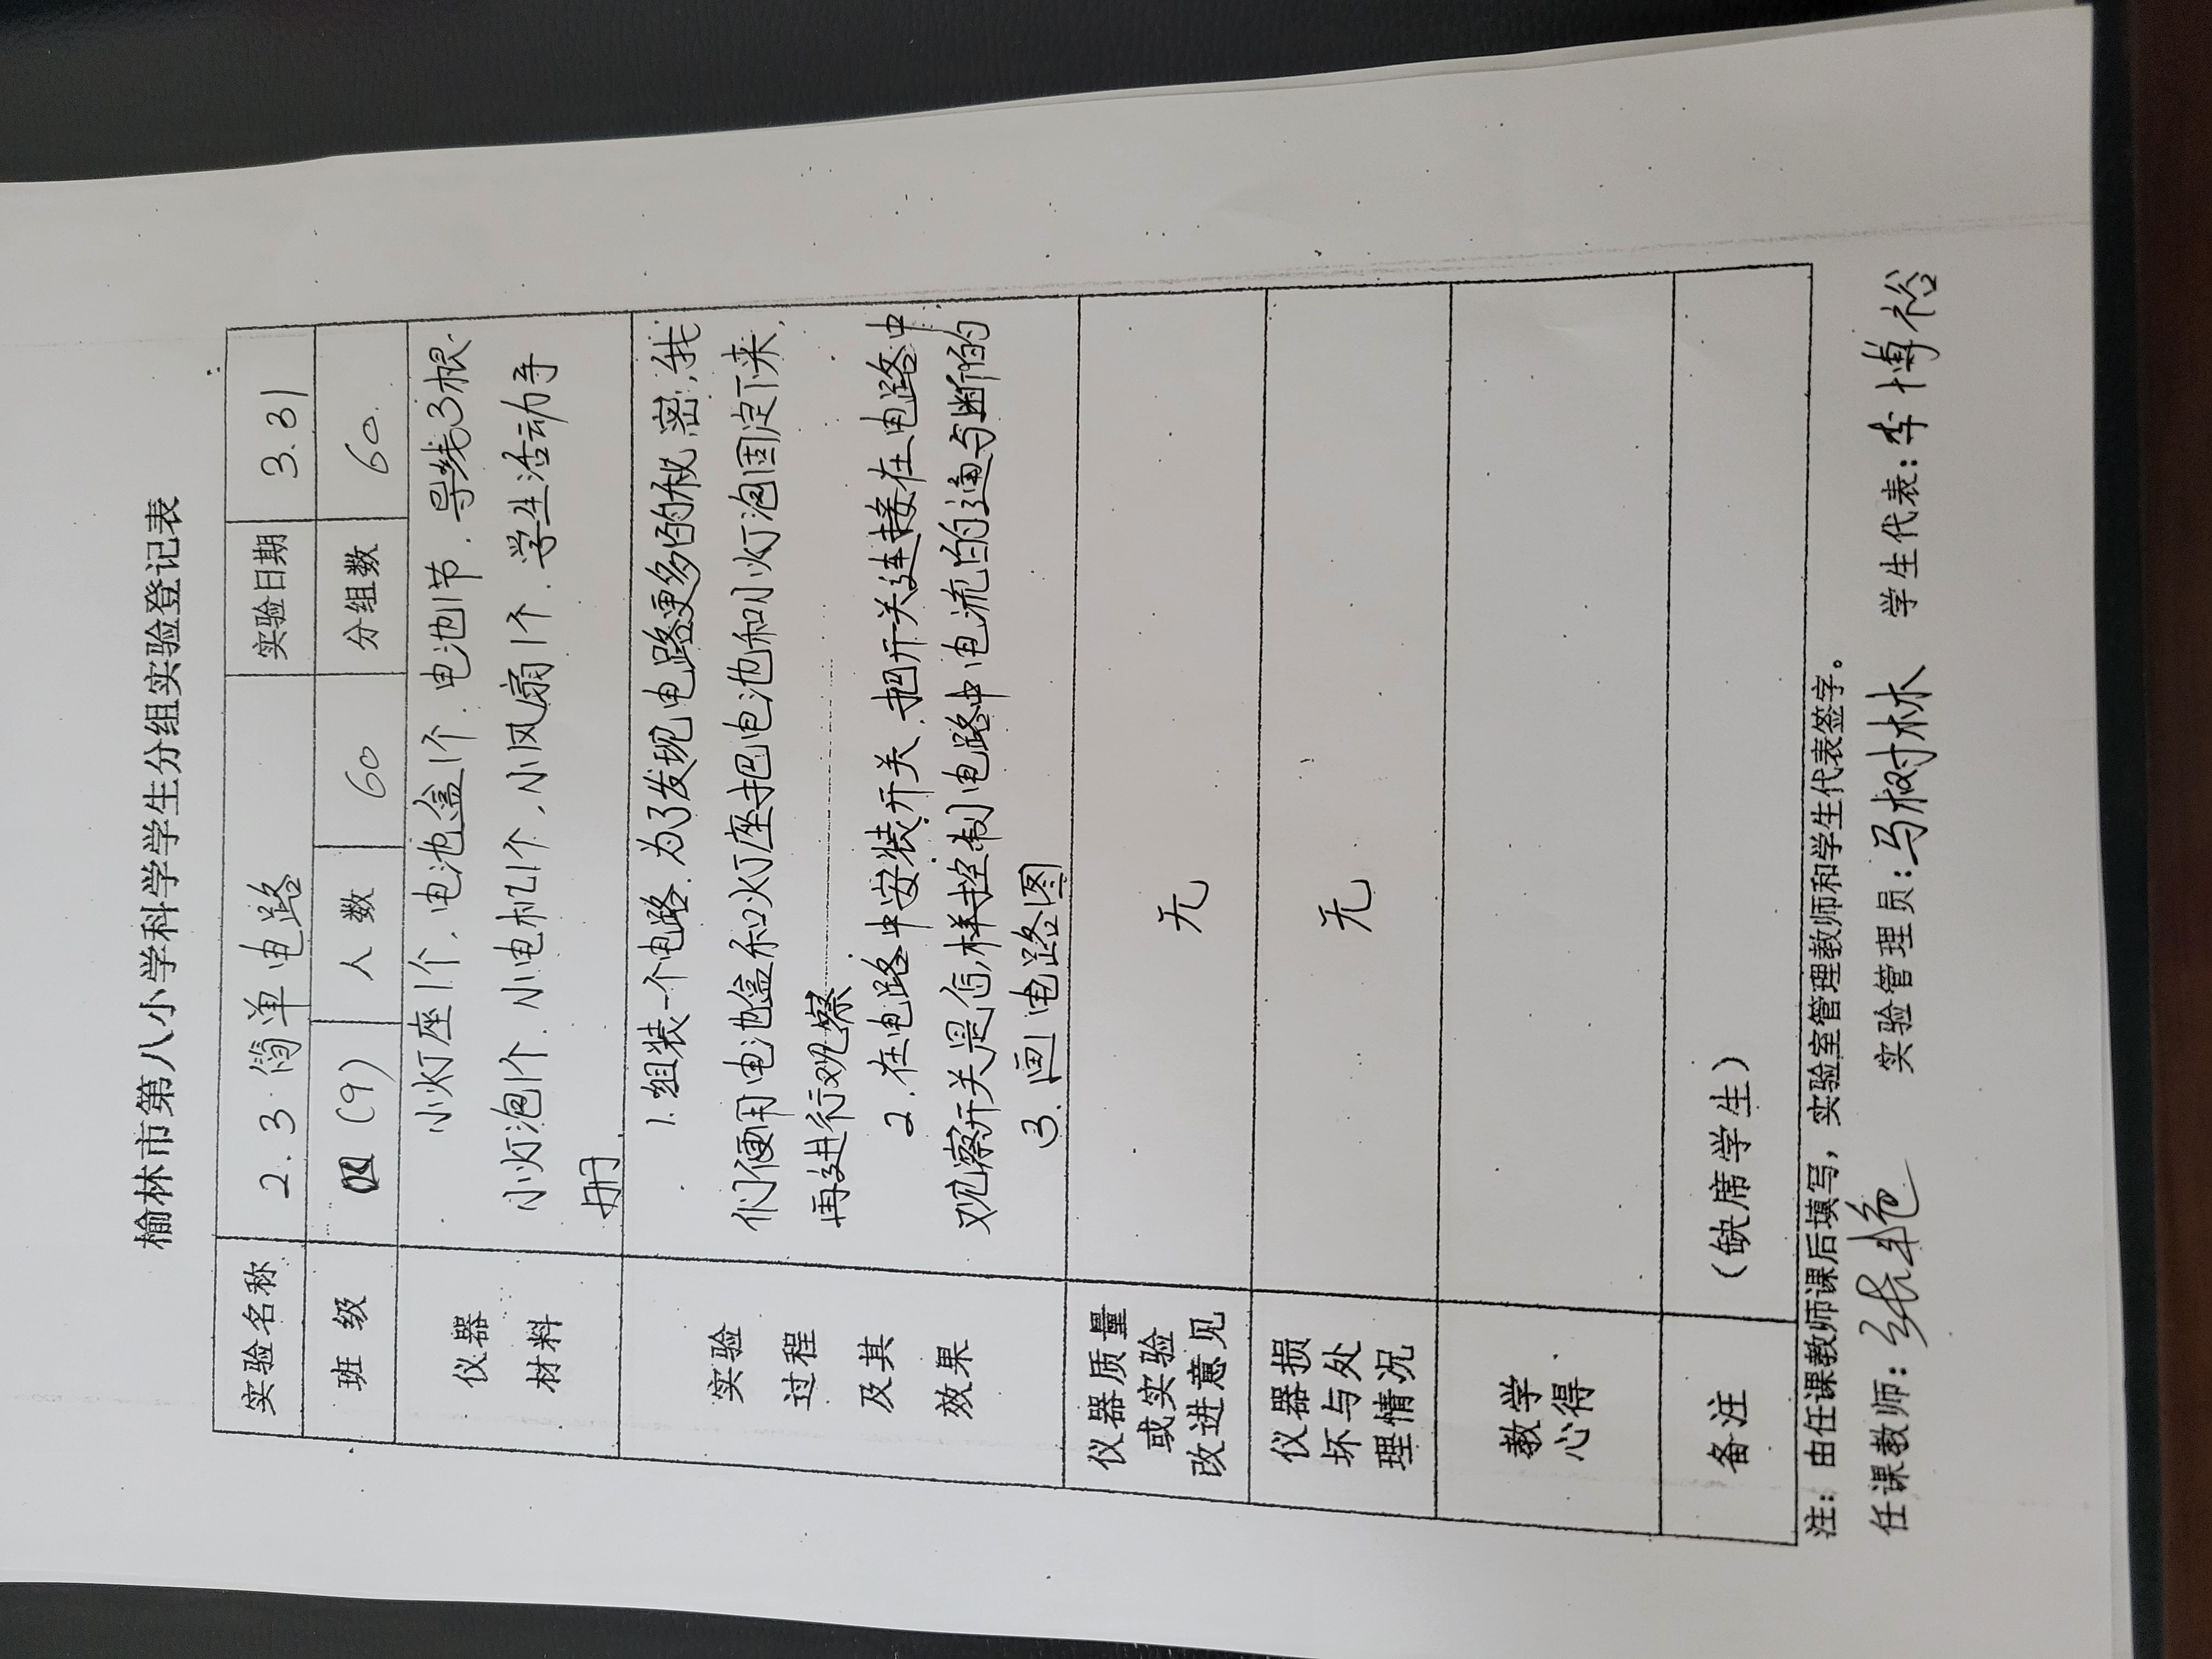 榆林市第八小学科学学生分组实验登记表
实验名称 2.3 简单电路 实验日期 3.31
班级 四(9) 人数 60 分组数 60
仪器
材料
小灯座1个、电池盒1个、电池1节、导线3根、
小灯泡1个、小电机1个、小风扇1个、学生活动手
册
实验
过程
及其
效果
1.组装一个电路.为了发现电路更多的秘密,我
们便用电池盒和火灯座把电池和小灯泡固定下来,
再进行观察
2.在电路中安装开关、把开关连接在电路中
观察开关是怎样控制电路中电流的通与断的
3.画电路图
仪器质量
或实验
改进意见
无
仪器损
坏与处
理情况
无
教学
心得
备注
(缺席学生)
注:由任课教师课后填写,实验室管理教师和学生代表签字。
任课教师:张艳 实验管理员:马树林 学生代表:李博裕